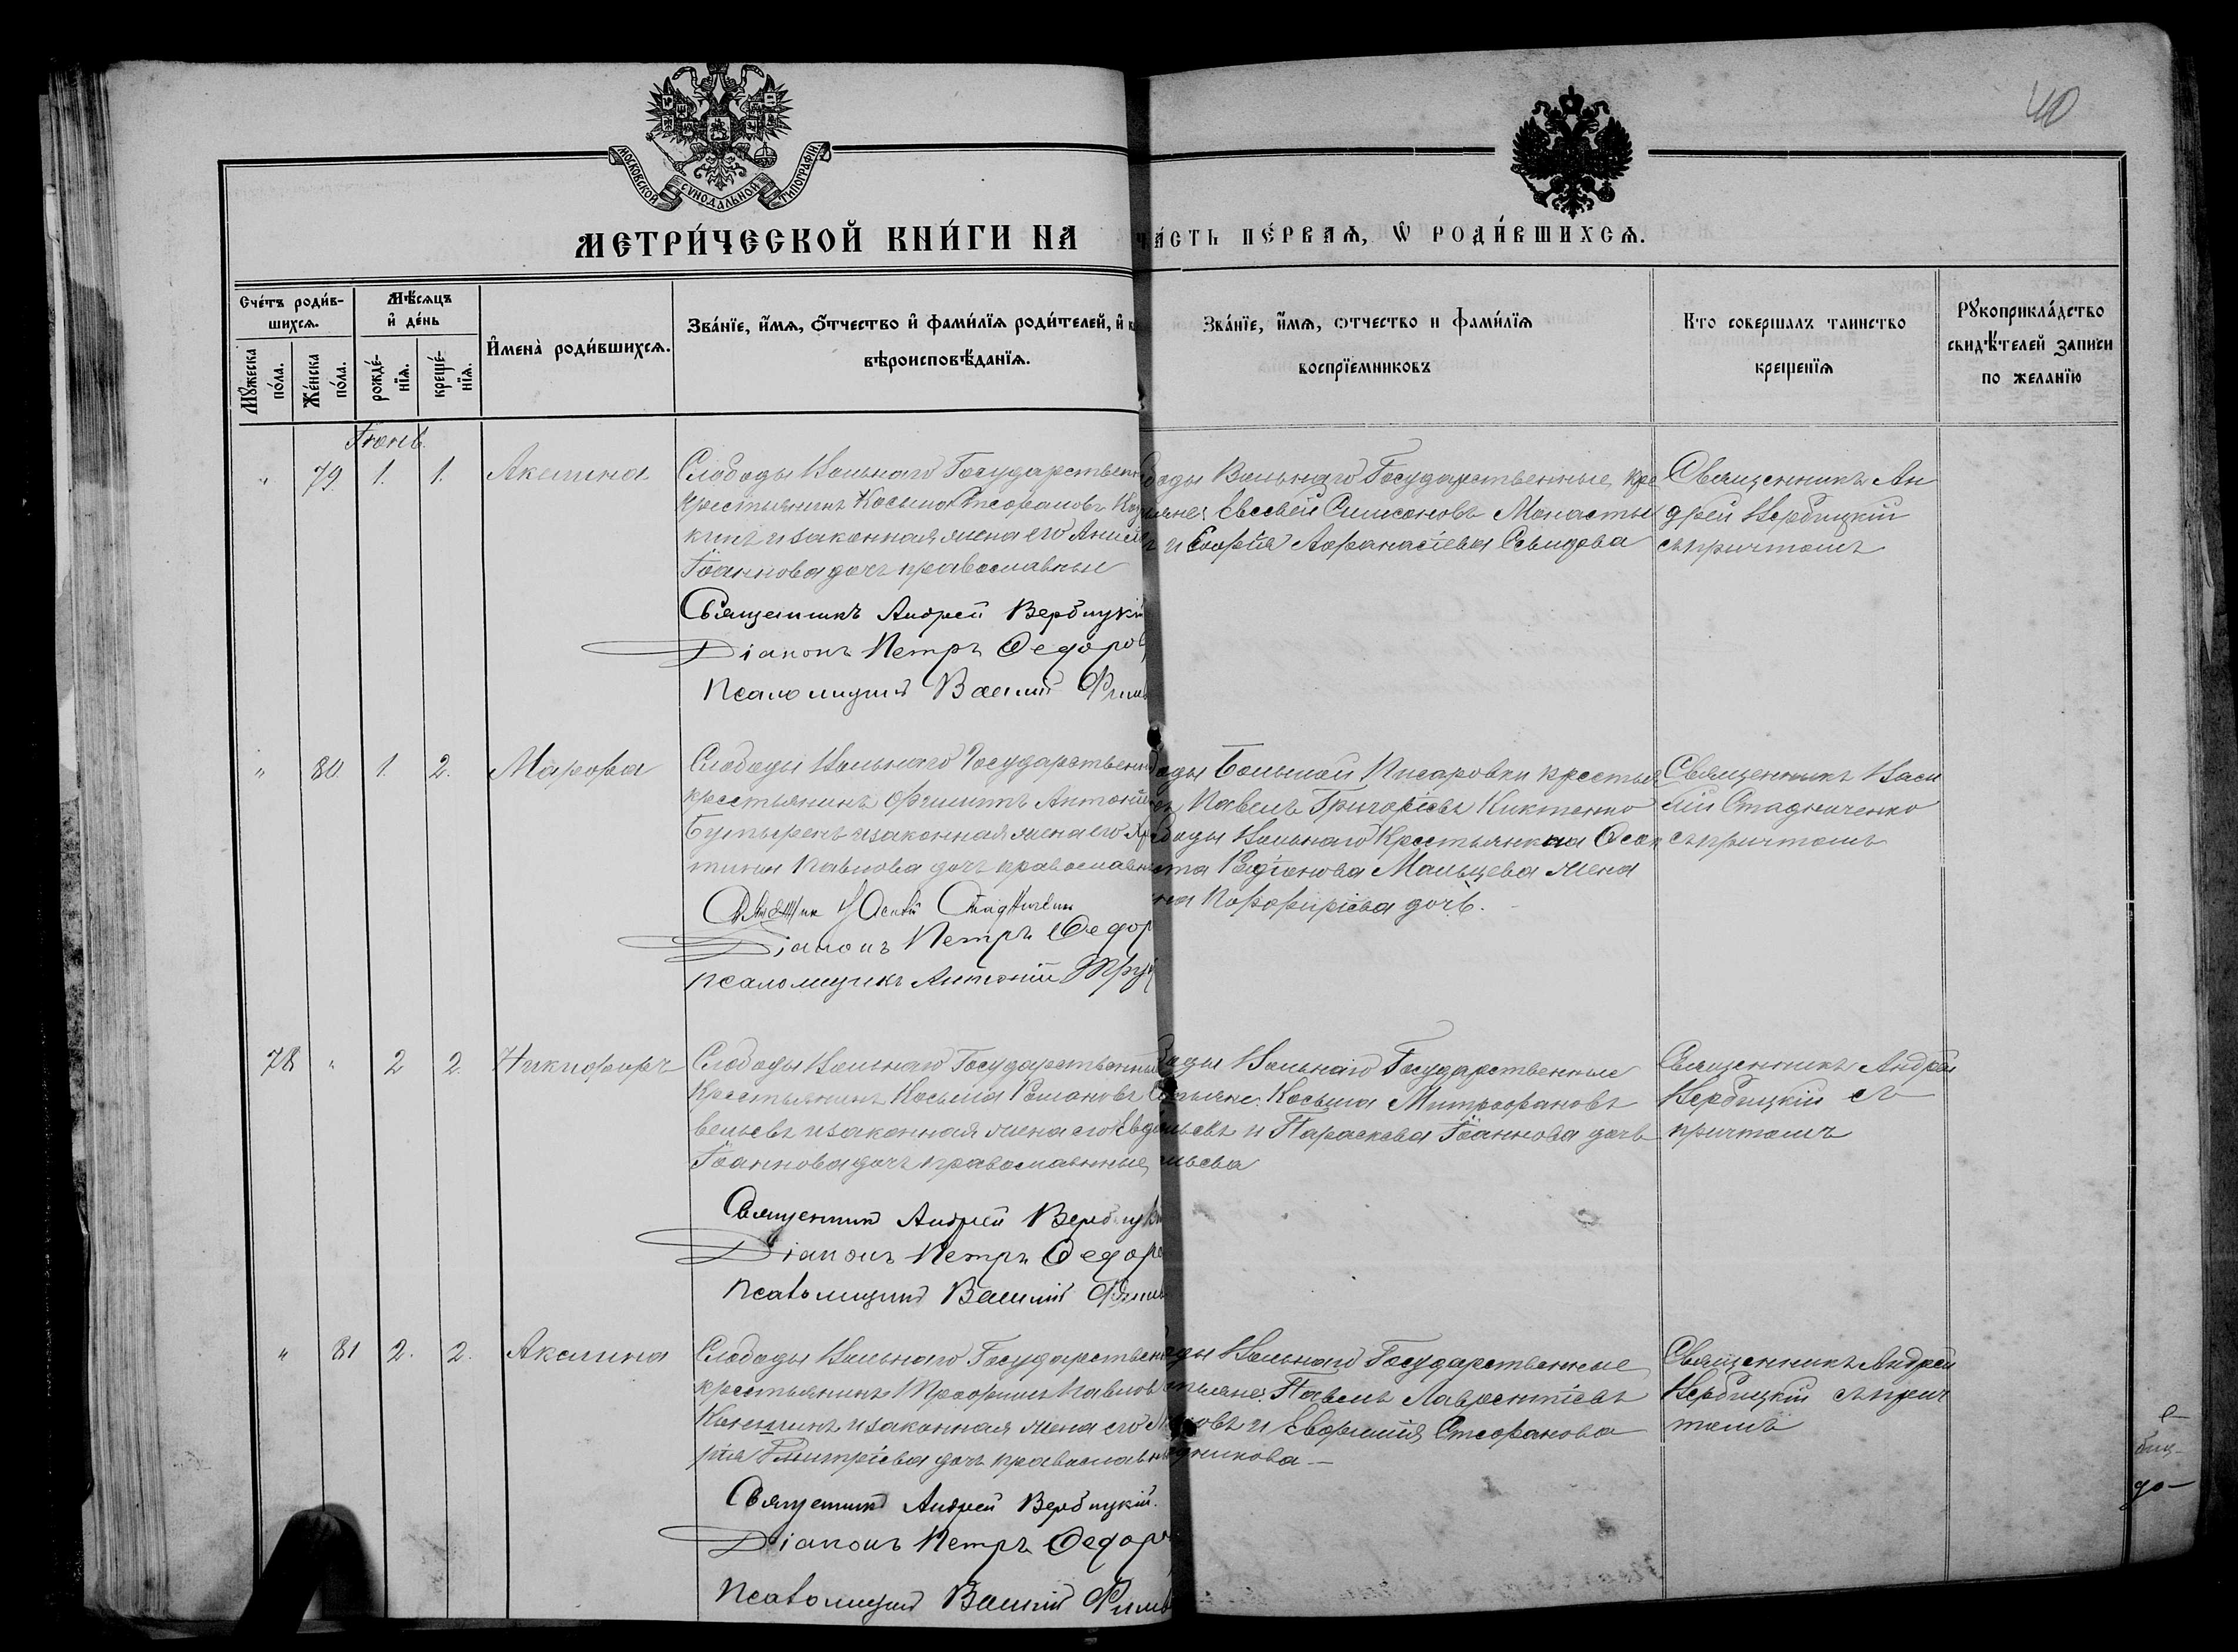 40
МОСКОВСКОЙ СУНОДАЛЬНОЙ ТИПОГРАФІИ
МЕТРИ́ЧЕСКОЙ КНИ́ГИ НА
ЧА́СТЬ ПЕ́РВАѦ, Ѡ РОДИ́ВШИХСѦ.
Сче́тъ роди́в-
шихсѧ.
Мꙋжеска по́ла.
Же́нска по́ла.
Мѣ́сѧцъ
и де́нь
рожде́-
нїѧ.
креще́-
нїѧ.
Имена̀ роди́вшихсѧ.
Зва́нїе, и́мѧ, о́тчество и фами́лїѧ роди́телей, и
вѣроисповѣ́данїѧ.
Зва́нїе, и́мѧ, ѻтчество и фами́лїѧ
воспрїе́мниковъ
Кто совершалъ таинство
крещенїѧ
Рꙋкоприкла́дство
свидѣ́телей записи
по желанїю
Іюнь
" 79 1. 1. Акилина
Слободы Вольнаго Государствен
крестьянинъ Косьма Стефановъ
кинъ и законная жена его
Іоаннова дочь православные
Священникъ Андрей Вербицкій
Діаконъ Петръ Федоро
Псаломщикъ Василій Фили
боды Вольнаго Государственные кре
Евсевій Симеоновъ Монасты
и Софія Афанасіева Севидова
Священникъ Ан
дрей Вербицкій
съ причтомъ
" 80 1. 2. Мавра
Слободы Вольнаго Государствен
крестьянинъ Филиппъ Антоні
Бутыренъ и законная жена его
тина Павлова дочь православ
Василій Стадниченко
Діаконъ Петръ Федор
псаломщикъ Антоній
Большой Писаровки крестья
Павелъ Григорьевъ Киктенко
боды Вольнаго крестьянка Феок
ста Родіонова Мальцева жена
Порфиріева дочь.
Священникъ Васи
лій Стадниченко
съ причтомъ
78 " 2 2. Никифоръ
Слободы Вольнаго Государственны
крестьянинъ Косьма Романовъ
вельевъ и законная жена его Евдо
Іоаннова дочь православные
Священникъ Андрей Вербицк
Діаконъ Петръ Федоро
Псаломщикъ Василій Фили
Вольнаго Государственные
Косьма Митрофановъ
и Параскева Іоаннова дочь
льева
Священникъ Андрей
Вербицкій съ
причтомъ
" 81 2. 2. Акилина
Слободы Вольнаго Государствен
крестьянинъ Прохоръ Павлов
и законная жена его Ма
рія Дмитріева дочь православны
Священникъ Андрей Вербицкій.
Діаконъ Петръ Федоро
Псаломщикъ Василій Фили
Вольнаго Государственные
Павелъ Лаврентіевъ
и Евфимія Стефанова
Священникъ Андрей
Вербицкій съ прич
томъ